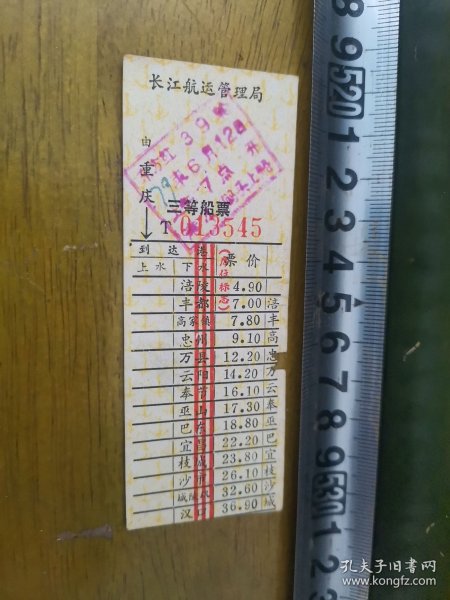 长江航运管理局
由重庆
39
6月12日
7点 开
三等船票
T 013545
到达港
票价
上水 下水
(席位标志)
涪陵 4.90
丰都 7.00 涪
高家镇 7.80 丰
忠州 9.10 高
万县 12.20 忠
云阳 14.20 万
奉节 16.10 云
巫山 17.30 奉
巴东 18.80 巫
宜昌 22.20 巴
枝城 23.80 宜
沙市 26.10 枝
城陵矶 32.60 沙
汉口 36.90 城
8 9 520 1 2 3 4 5 6 7 8 9 530 1 2
孔夫子旧书网
www.kongfz.com